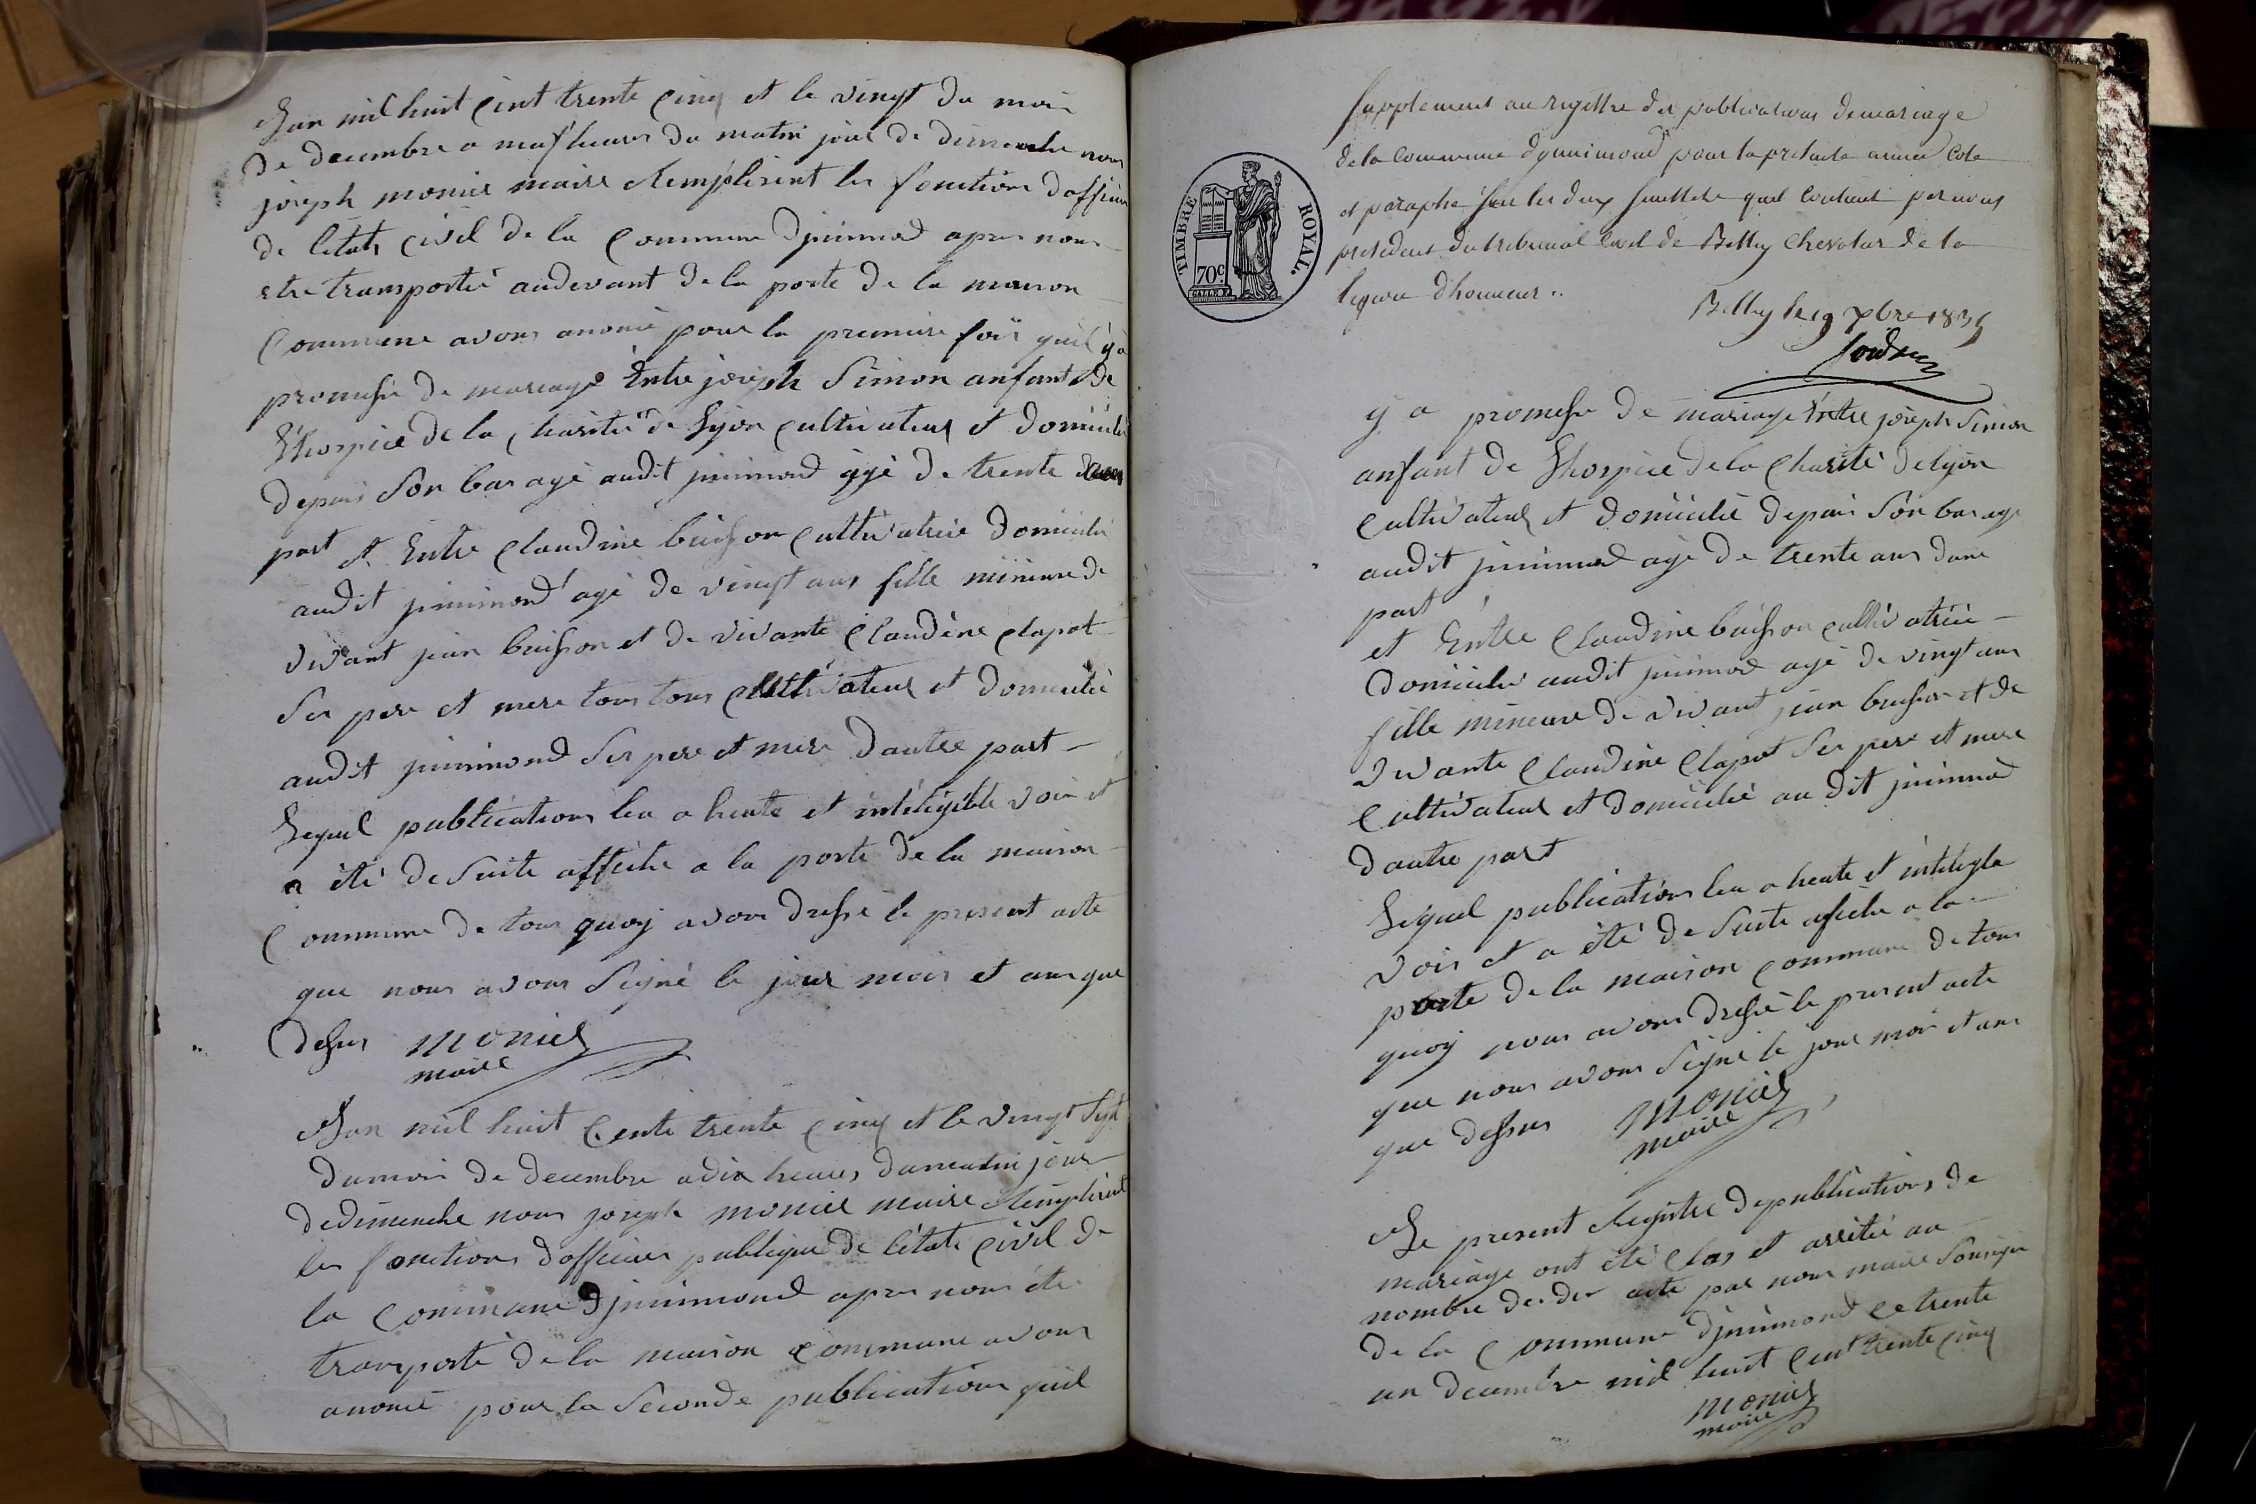 Lan mil huit Cent trente Cinq et le vingt du mois
de decembre a neuf heures du matin jour de dimenche nous
joseph monier maire Remplisent les fonctions dofficier
de letats Civil de la Commune Djnimond apres nous
etre transporté audevant de la porte de la maison
Commune avons anoncé pour la premiere fois quil y a
promesse de mariage Entre joseph Simon anfant de
Lhospice de la Charité de Lyon Cultivateur et domicilié
depuis Son bas age audit jnimond agé de trente
part et Entre Claudine buisson Cultivatrice domicilié
audit jnimond agé de vingt ans fille mineure de
vivant jean buisson et de vivante Claudine Clapot
Ses pere et mere tous tous Cultivateur et domicilié
audit jnimond Ses pere et mere dautre part
Lequel publications lu a heute et inteligible voix et
a été de Suite affiche a la porte de la maison
Commune de tous quoy avons dressé le present acte
que nous avons Signé le jour mois et ans que
dessus monier
maire
Lan mil huit Cents trente Cinq et le vingt Sept
du mois de decembre a dix heures du matin jour
de dimenche nous joseph monier maire Remplisent
les fonctions dofficier publique de letats Civil de
la Commune djnimond apres nous etre
transporté de la maison Commune avons
anoncé pour la Seconde publications quil
Supplement au registre des publications de mariage
de la Commune dynnimond pour la présente année Coté
et paraphé sur les deux feuillets quil contient par nous
président du tribunal Civil de Belley Chevalier de la
legion d'honneur
Belley le 19 Xbre 1835
TIMBRE ROYAL.
70c
y a promesse de mariage Entre joseph Simon
anfant de Lhospice de la Charité de lyon
Cultivateur et domicilié depuis Son bas age
audit jnimond agé de trente ans dune
part
et Entre Claudine buisson Cultivatrice
domicilié audit jnimond agé de vingt ans
fille mineure de vivant jean buisson et de
vivante Claudine Clapot Ses pere et mere
Cultivateur et domicilié au dit jnimond
dautre part
Lequel publications lu a heute et inteligle
voix et a été de Suite afiche a la
porte de la maison Commune de tous
quoy nous avons dressé le present acte
que nous avons Signé le jour mois et ans
que dessus monier
maire
Le present Registre de publications de
mariage ont été Clos et arrété au
nombre de der acte par nous maire Sousigné
de la Commune djnimond Ce trente
un decembre mil huit Cent trente Cinq
monier
maire